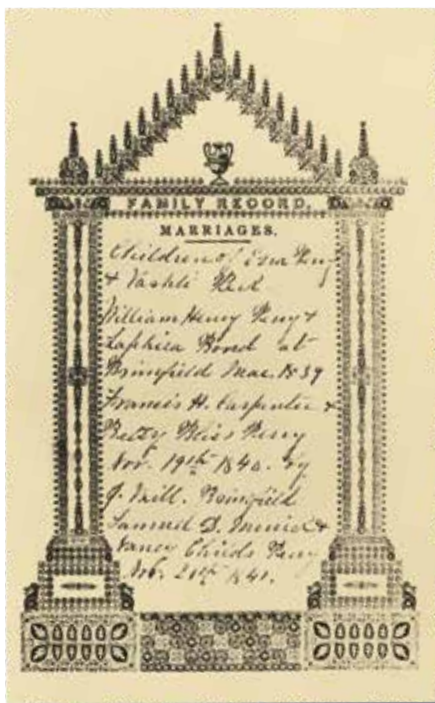 FAMILY RECORD.
MARRIAGES.
Children of Ezra Perry
& Vashti
William Henry Perry &
Bond at
Brimfield Mar. 1839
Francis H. Carpenter &
Betsy Bliss Perry
Nov. 19th 1840. by
J. Brimfield
Samuel D. &
Nancy Childs Perry
1841.